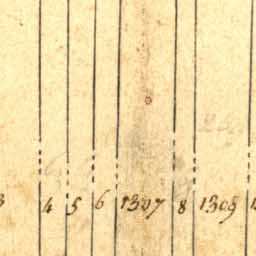 4 5 6 1307 8 1309